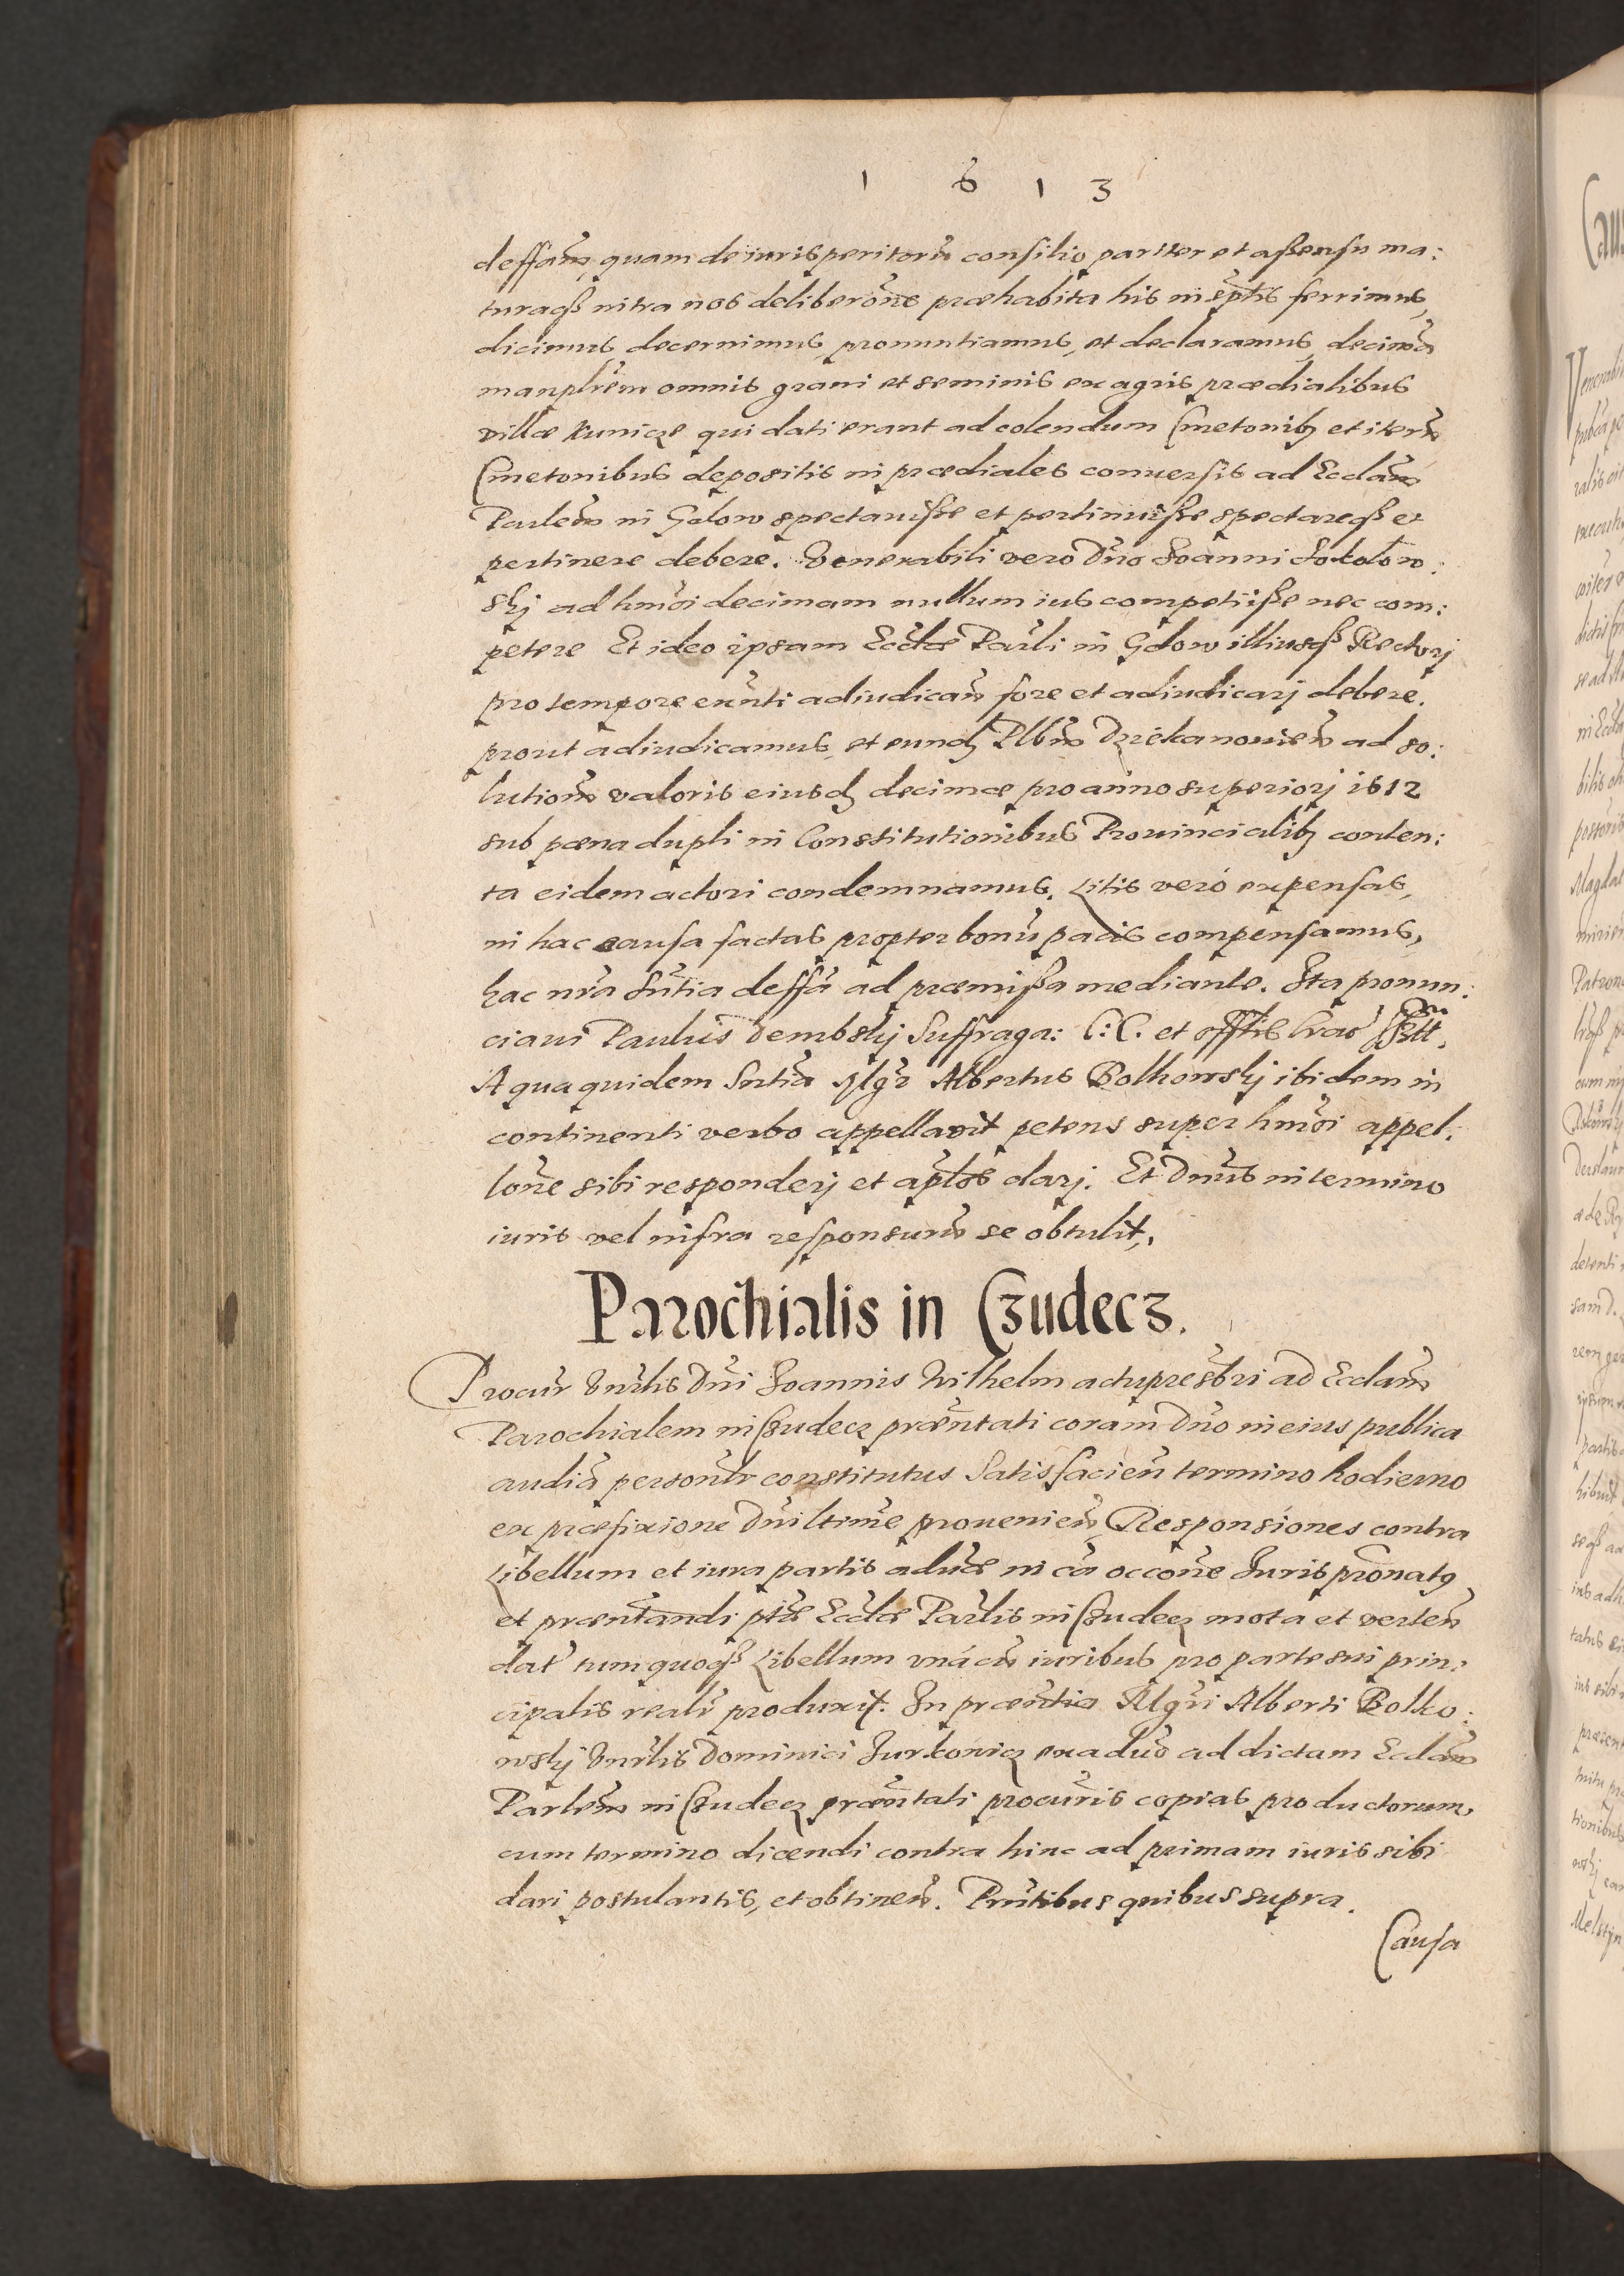 1 6 1 3
deffam̃, quam de iurisperitorũ consilio pariter et assensu ma:
turaq̃ intra nos deliberõne præhabita his in sc̃ptis ferrimus,
dicimus, decernimus, pronuntiamus, et declaramus, decimã
manip̃lrem omnis grani et seminis ex agris prædialibus
villæ Kunicze qui dati erant ad colendum Cmetonibꝫ et iterũ
Cmetonibus depositis in prædiales conuersis ad Eccl̃am
Parlem̃ in Gdow spectauisse et pertinuisse spectareq̃ et
pertinere debere. Venerabili vero Dño Joanni Sokolow:
skj ad hm̃oi decimam nullum ius competiisse nec com:
petere Et ideo ipsam Eccl̃æ Par̃li in Gdow illiusq̃ Rectorj
pro tempore exñti adiudicañ fore et adiudicarj debere.
prout adiudicamus, et eundꝫ Pl̃bñm Dziekanouieñ ad so:
lutionẽ valoris eiusdꝫ decimæ pro anno superiorj 1612
sub pæna dupli in Constitutionibus Prouincialibꝫ conten:
ta eidem actori condemnamus. Litis verò expensas,
in hac causa factas propter bonũ pacis compensamus,
hac nr̃a Sñtia deffã ad præmissa mediante. Ita pronun:
ciaui Paulus Dembskj Suffraga: C: C. et
A qua quidem Sñtia Mg̃r Albertus Bolkowskj ibidem in
continenti verbo appellauit petens super hm̃oi appel:
lõne sibi responderj et ap̃los darj. Et Dñus in termino
iuris vel infra responsurũ se obtulit.
Parochialis in Czudecz.
Procur̃ Vñrlis Dñi Joannis Wilhelm actu presb̃ri ad Eccl̃am
Parochialem in Czudecz præñtati coram Dño in eius publica
audiã personl̃r constitutus Satisfacieñ termino hodierno
ex præfixione Dñi ltĩme proueniẽn Responsiones contra
Libellum et iura partis adũsæ in cã occõne Juris pr̃onatꝯ
et præsñtandi p̃tæ Eccl̃æ Par̃lis in Czudecz mota et verteñ
dat tum quoq̃ Libellum vnà cũ iuribus pro parte sui prin:
cipalis realr̃ produxit. In præñtia Mg̃ri Alberti Bolko:
wskj Vñrlis Dominici Jurkowicz ex aduõ ad dictam Eccl̃am
Parlem̃ in Czudecz præñtati procur̃is copias productorum,
cum termino dicendi contra hinc ad primam iuris sibi
dari postulantis, et obtineñ. Pñtibus quibus supra.
Causa